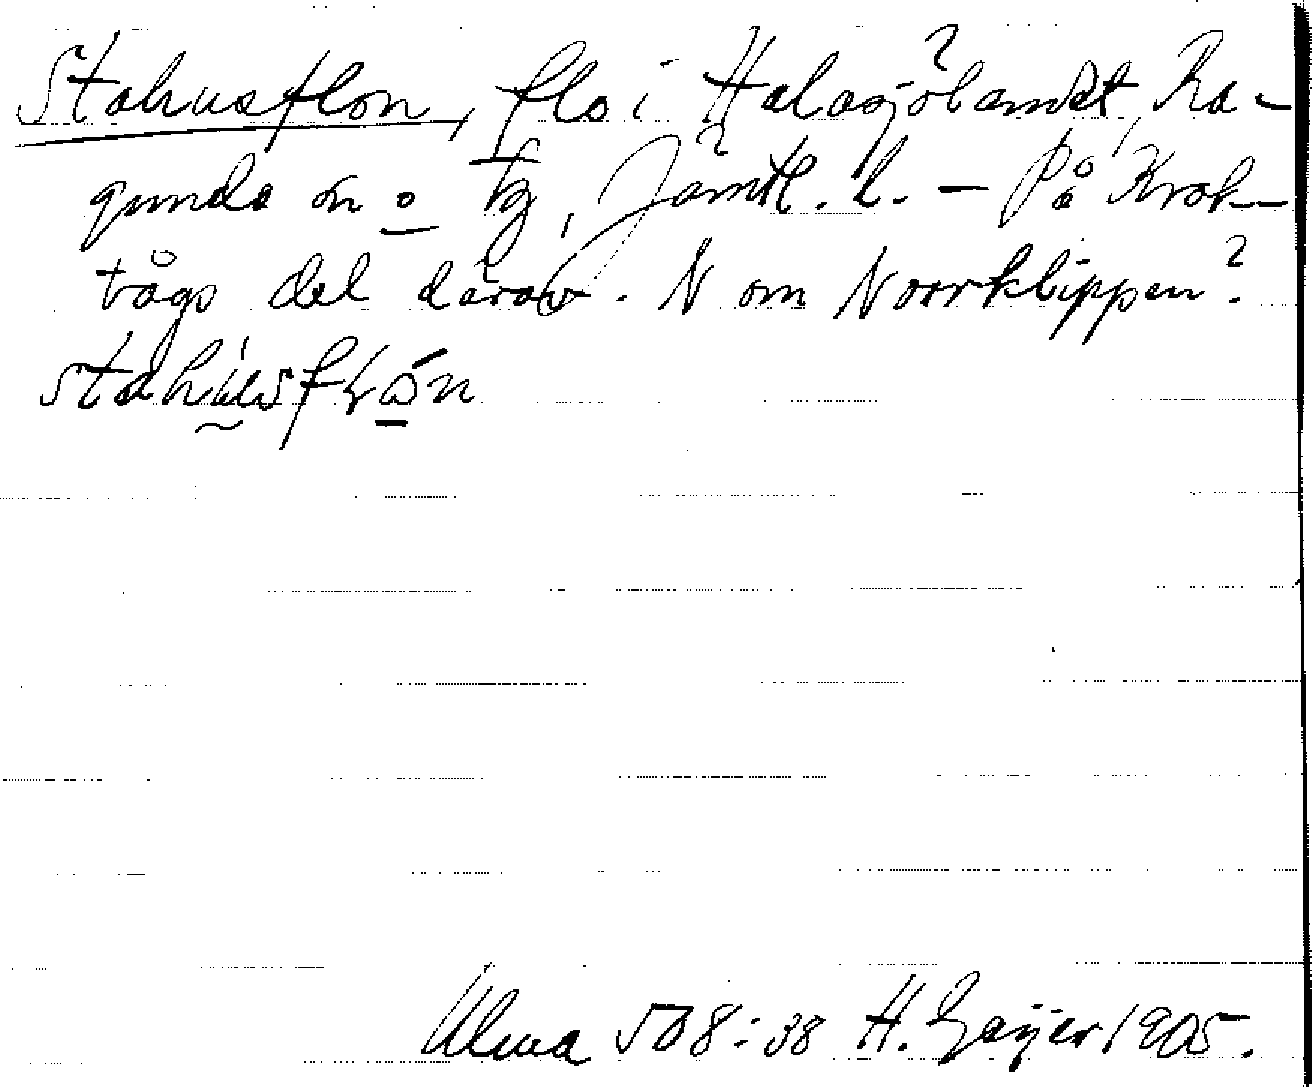 Stahusflon, flo i Halasjölandet, Ra-
gunda sn o. tg, Jämtl. l. – På Krok-
vågs del därav. N om Norrklippen?
stahusflon
Ulma 508:38 H. Geijer 1905.